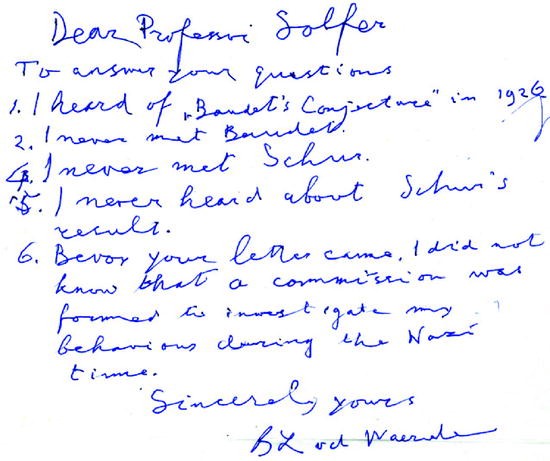 Dear Professor Solfer
To answer your questions
1. I heard of „Baudet's Conjecture" in 1926
2. I never met Baudet.
4. I never met Schur.
5. I never heard about Schur's
result.
6. Bevor your letter came, I did not
know that a commission was
formed to investigate my
behaviour during the Nazi
time.
Sincerely yours
BL vd Waerden